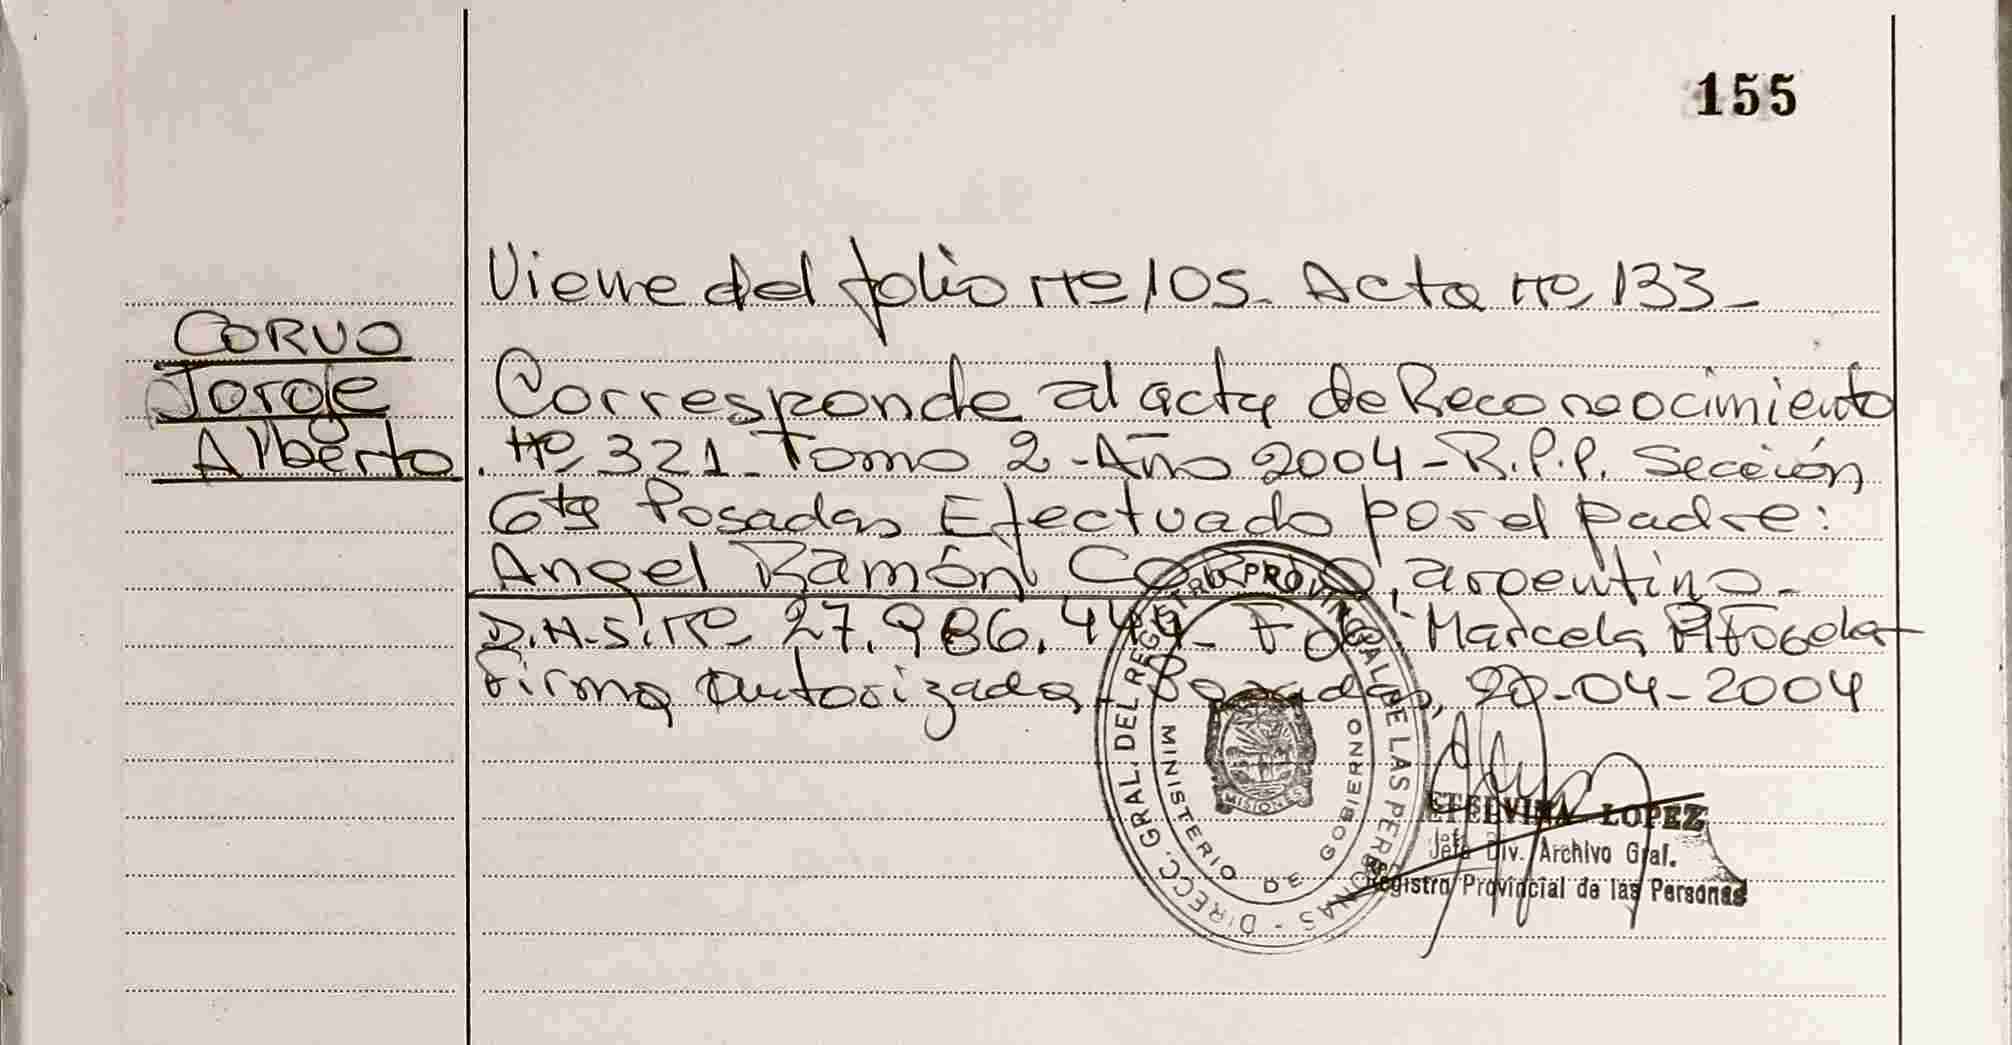 155
Viene del folio Nº 105. Acta Nº 133-
CORVO
Jorge
Alberto
Corresponde al acta de Reconocimiento
Nº 321- Tomo 2 -Año 2004- R.P.P. Sección
6ta Posadas Efectuado por el padre:
Angel Ramón CORVO, argentino-
D.N.I. Nº 27.986.449- Fdo: Marcela
Firma autorizada- Posadas, 20-04-2004
DIRECC. GRAL. DEL REGISTRO PROVINCIAL DE LAS PERSONAS -
MINISTERIO DE GOBIERNO
MISIONES
ETELVINA LOPEZ
Jefa Div. Archivo Gral.
Registro Provincial de las Personas